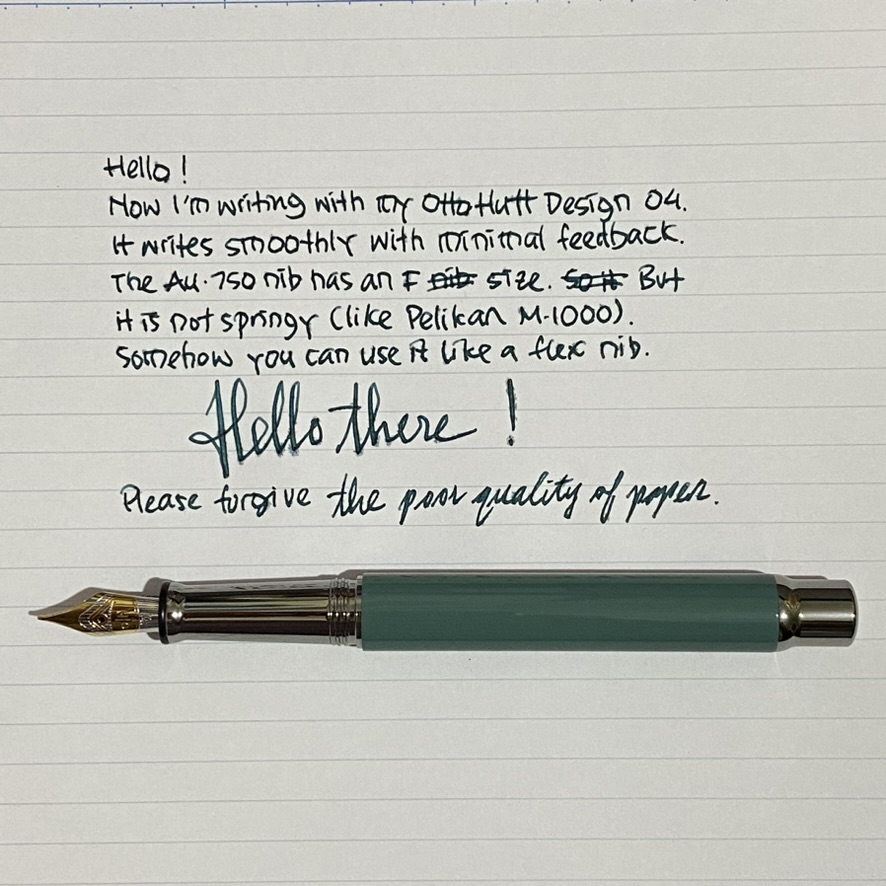 Hello!
Now I'm writing with my Otto Hutt Design 04.
It writes smoothly with minimal feedback.
The Au.750 nib has an F nib size. So it But
it is not springy (like Pelikan M-1000).
Somehow you can use it like a flex nib.
Hello there!
Please forgive the poor quality of paper.